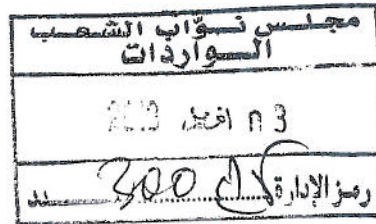 مجلس نواب الشعب
الواردات
03 أفريل
رمز الإدارة 300